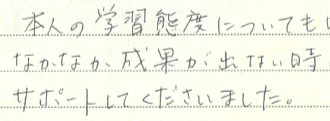 本人の学習態度についても
なかなか成果が出ない時
サポートしてくださいました。